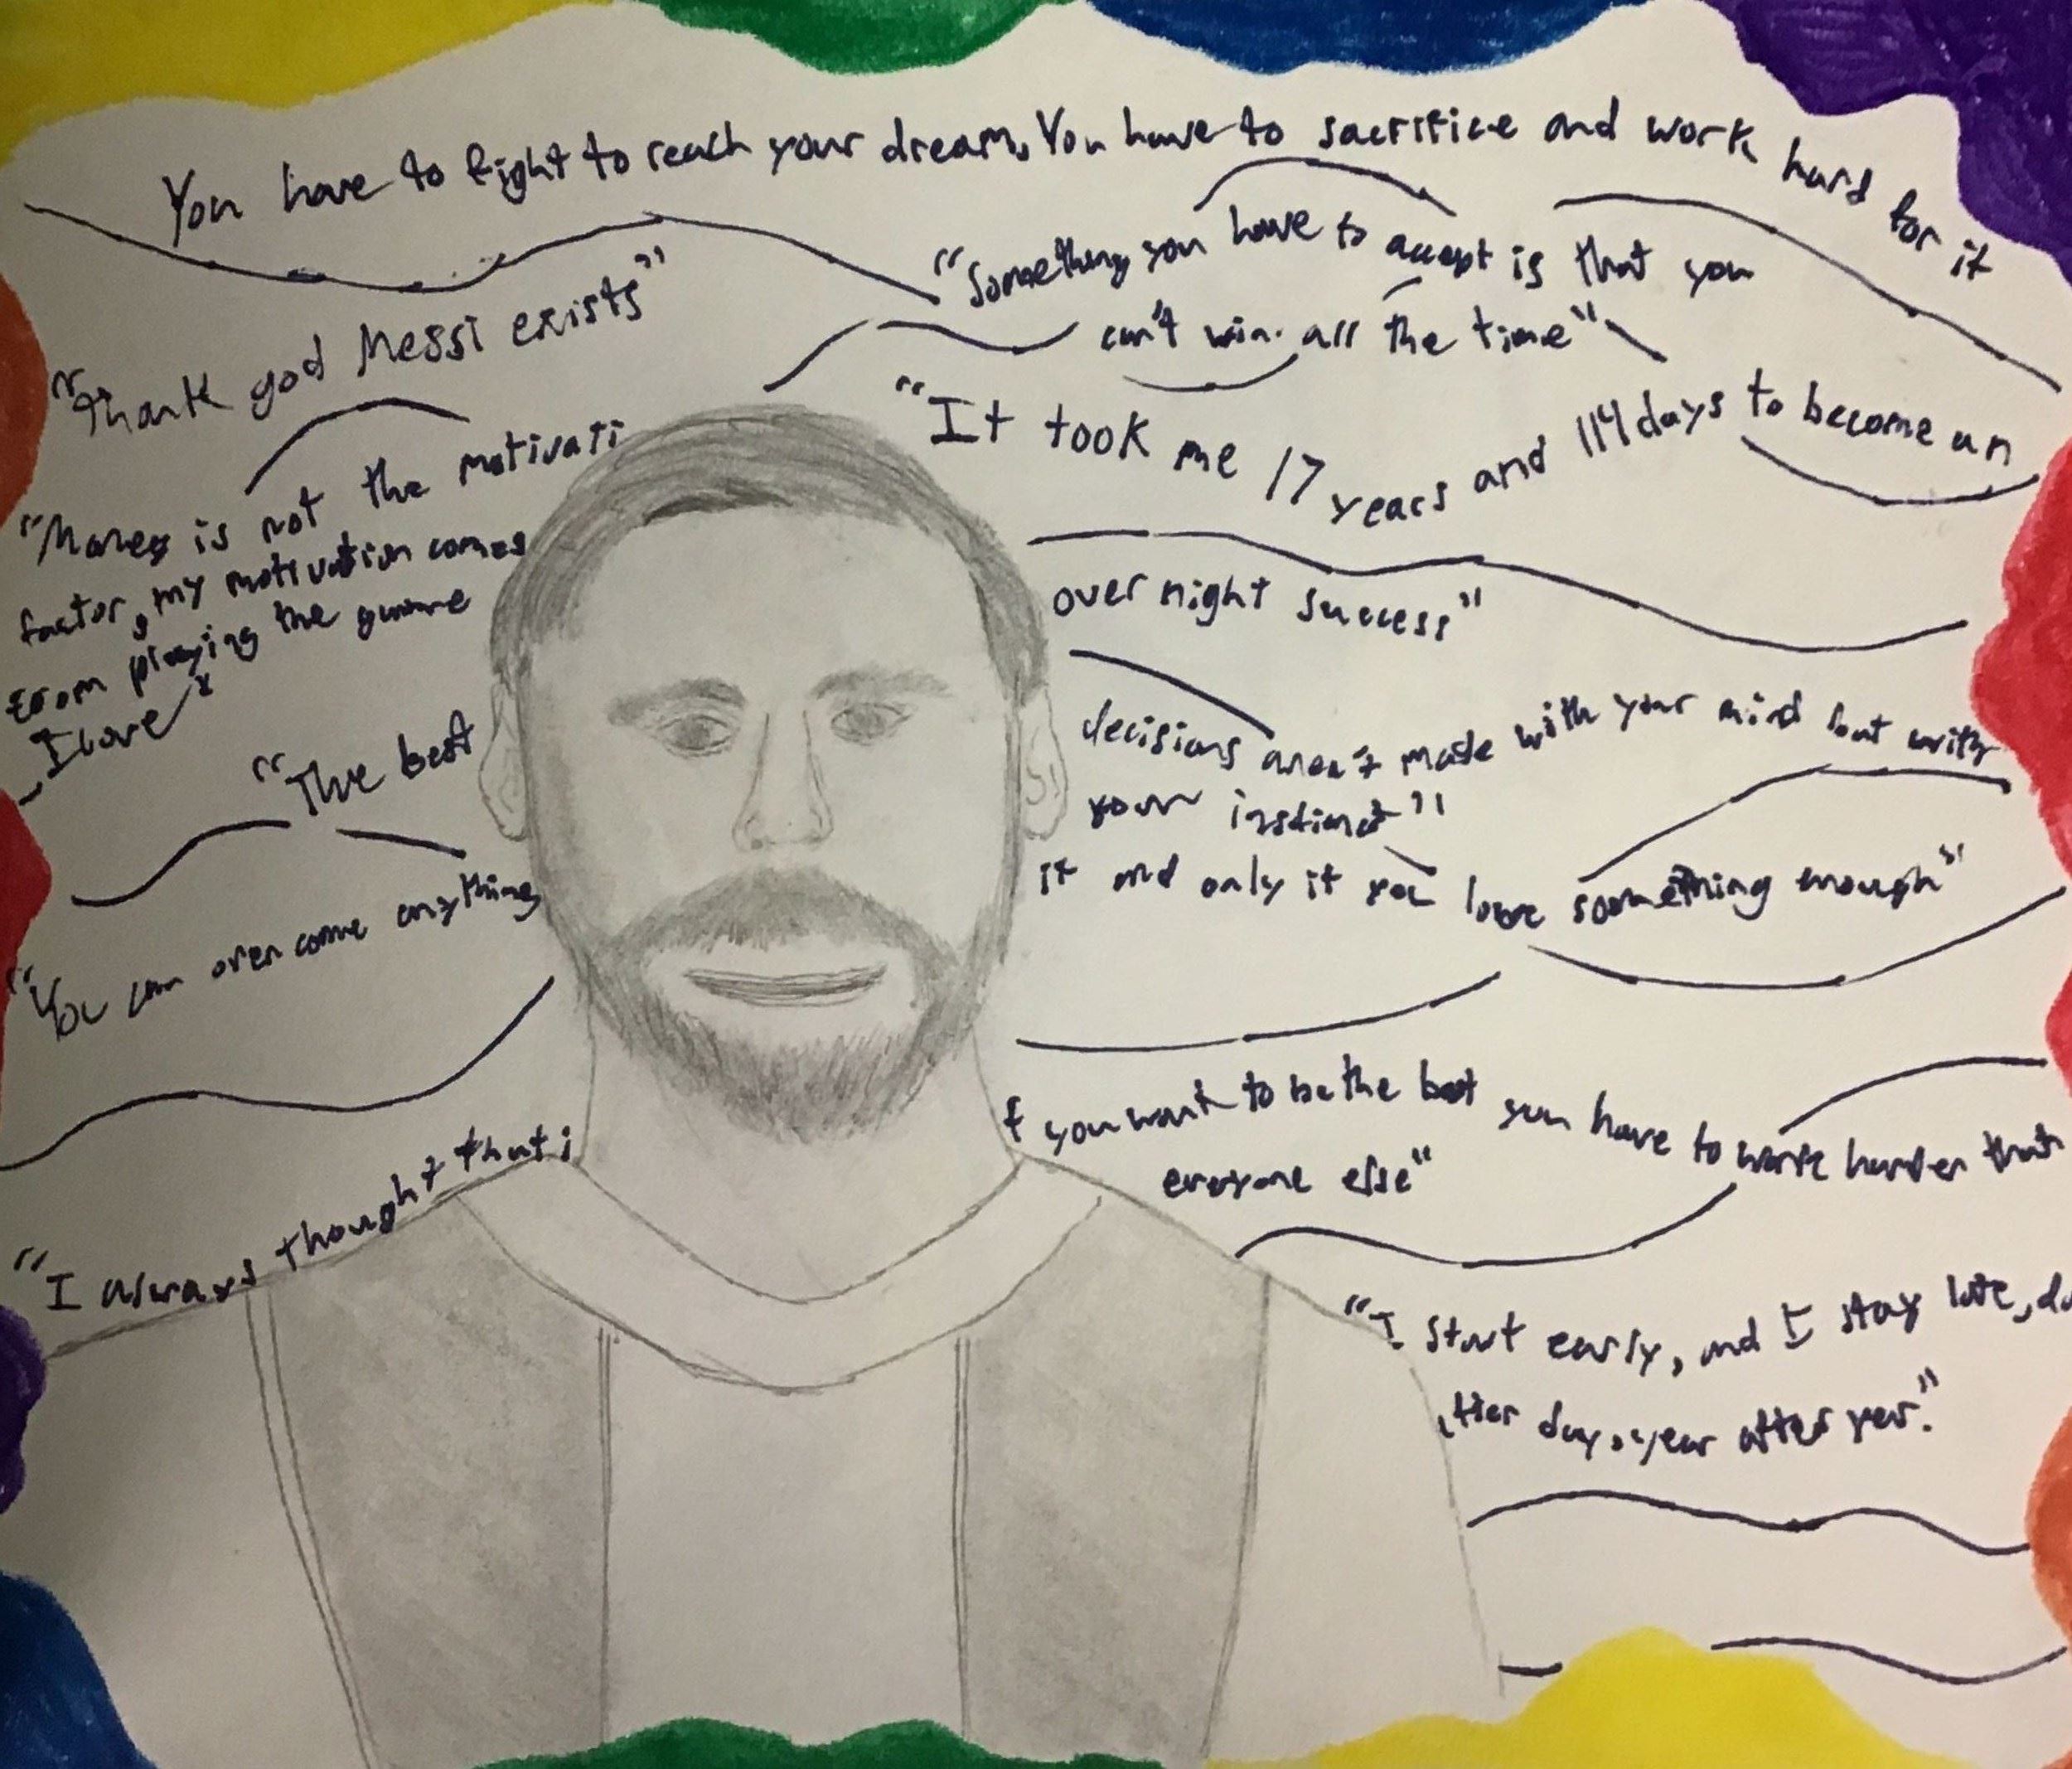 You have to fight to reach your dream. You have to sacrifice and work hard for it
"Something you have to accept is that you
can't win all the time"
"Thank god Messi exists"
"It took me 17 years and 114 days to become an
over night success"
"Money is not the motivati
factor, my motivation comes
from playing the game
I love
"The best
decisions aren't made with your mind but with
your instinct"
"You can over come anything
if and only if you love something enough"
"I always thought that i
f you want to be the best you have to work harder than
everyone else"
"I start early, and I stay late, da
after day, year after year."